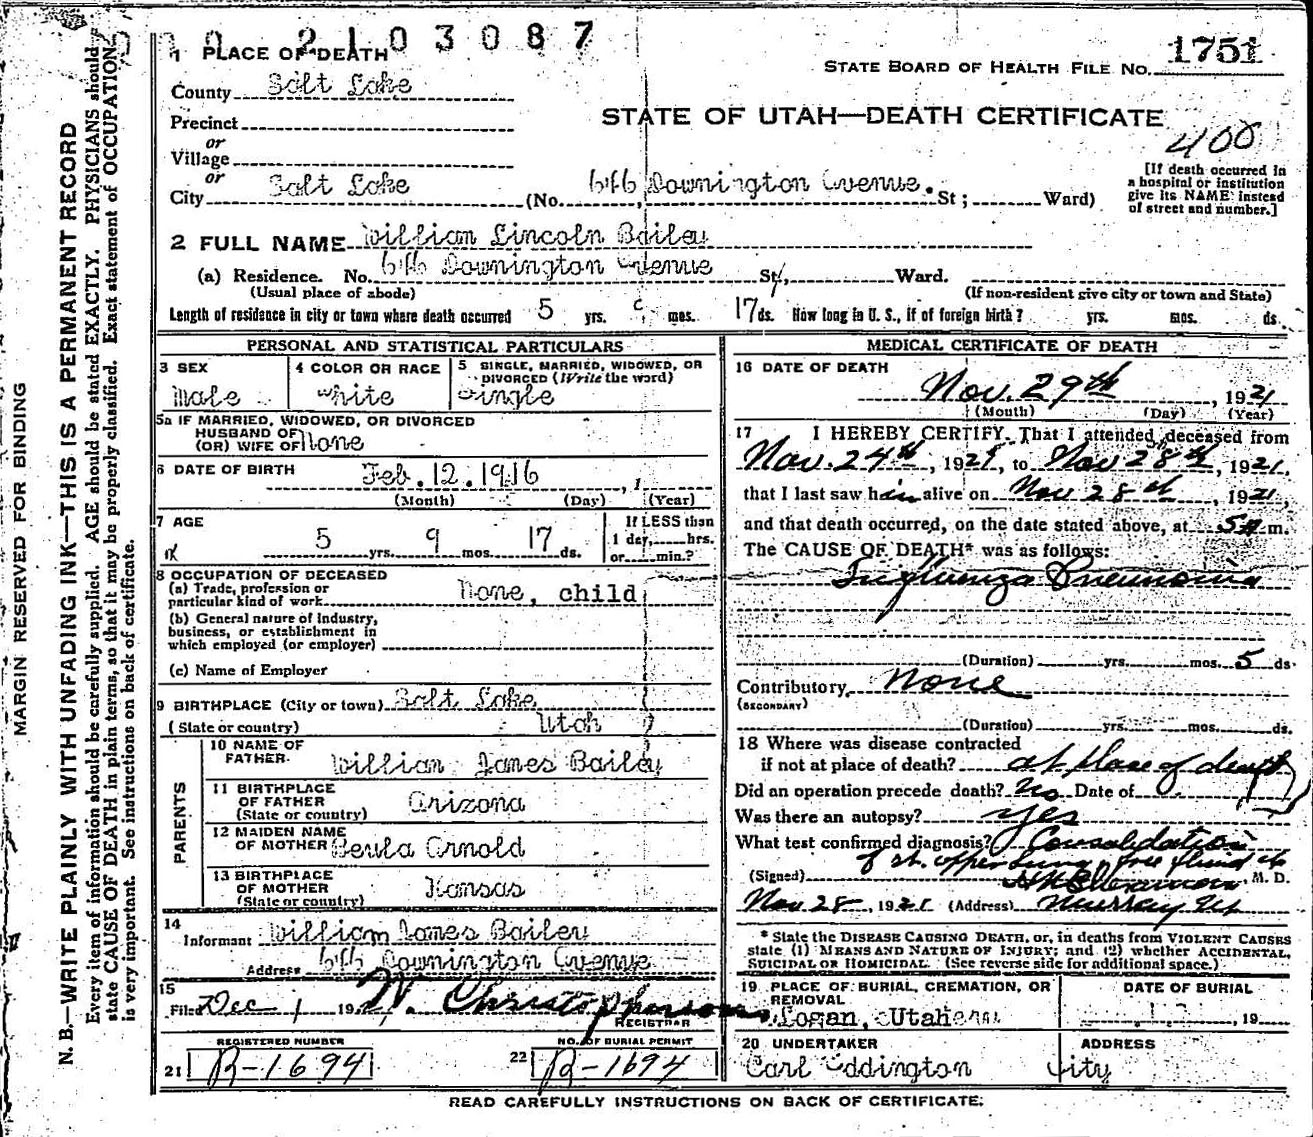 2103087
1751
STATE BOARD OF HEALTH FILE NO.
1 PLACE OF DEATH
County Salt Lake
STATE OF UTAH—DEATH CERTIFICATE
400
Precinct
or
Village
or
City Salt Lake (No. 646 Downington Avenue. St; Ward)
[If death occurred in a hospital or institution give its NAME instead of street and number.]
2 FULL NAME William Lincoln Bailey
(a) Residence. No. 646 Downington Avenue St, Ward.
(Usual place of abode) (If non-resident give city or town and State)
Length of residence in city or town where death occurred 5 yrs. mos. 17 ds. How long in U. S., if of foreign birth? yrs. mos. ds.
PERSONAL AND STATISTICAL PARTICULARS
3 SEX Male
4 COLOR OR RACE White
5 SINGLE, MARRIED, WIDOWED, OR DIVORCED (Write the word) Single
5a IF MARRIED, WIDOWED, OR DIVORCED
HUSBAND OF
(OR) WIFE OF None
6 DATE OF BIRTH Feb. 12. 1916 , 1
(Month) (Day) (Year)
7 AGE 5 yrs. 9 mos. 17 ds.
If LESS than
1 day, hrs.
or min.?
8 OCCUPATION OF DECEASED
(a) Trade, profession or
particular kind of work None, child
(b) General nature of Industry,
business, or establishment in
which employed (or employer)
(c) Name of Employer
9 BIRTHPLACE (City or town) Salt Lake
(State or country) Utah
PARENTS
10 NAME OF FATHER William James Bailey
11 BIRTHPLACE OF FATHER (State or country) Arizona
12 MAIDEN NAME OF MOTHER Beula Arnold
13 BIRTHPLACE OF MOTHER (State or country) Kansas
14 Informant William James Bailey
Address 646 Downington Avenue
15 Filed Dec 1 192 W. Christopherson
REGISTRAR
REGISTERED NUMBER
21 B-1694
NO. OF BURIAL PERMIT
22 B-1694
MEDICAL CERTIFICATE OF DEATH
16 DATE OF DEATH
Nov. 29th , 1921
(Month) (Day) (Year)
17 I HEREBY CERTIFY. That I attended deceased from
Nov. 24th, 1921, to Nov 28th, 1921.
that I last saw him alive on Nov 28th , 1921,
and that death occurred, on the date stated above, at 5 m.
The CAUSE OF DEATH* was as follows:
Influenza Pneumonia
(Duration) yrs. mos. 5 ds.
Contributory None
(SECONDARY)
(Duration) yrs. mos. ds.
18 Where was disease contracted
if not at place of death? at place of death
Did an operation precede death? No Date of
Was there an autopsy? Yes
What test confirmed diagnosis? Consolidation
of rt. upper Lung, free fluid
(Signed) M. D.
Nov 28, 1921 (Address) Murray Ut
* State the DISEASE CAUSING DEATH, or, in deaths from VIOLENT CAUSES
state (1) MEANS AND NATURE OF INJURY; and (2) whether ACCIDENTAL,
SUICIDAL OR HOMICIDAL. (See reverse side for additional space.)
19 PLACE OF BURIAL, CREMATION, OR REMOVAL
Logan, Utah
DATE OF BURIAL
, 19
20 UNDERTAKER
Carl Eddington
ADDRESS
City
READ CAREFULLY INSTRUCTIONS ON BACK OF CERTIFICATE.
MARGIN RESERVED FOR BINDING
N. B.—WRITE PLAINLY WITH UNFADING INK—THIS IS A PERMANENT RECORD
Every item of information should be carefully supplied. AGE should be stated EXACTLY. PHYSICIANS should
state CAUSE OF DEATH in plain terms, so that it may be properly classified. Exact statement of OCCUPATION
is very important. See instructions on back of certificate.